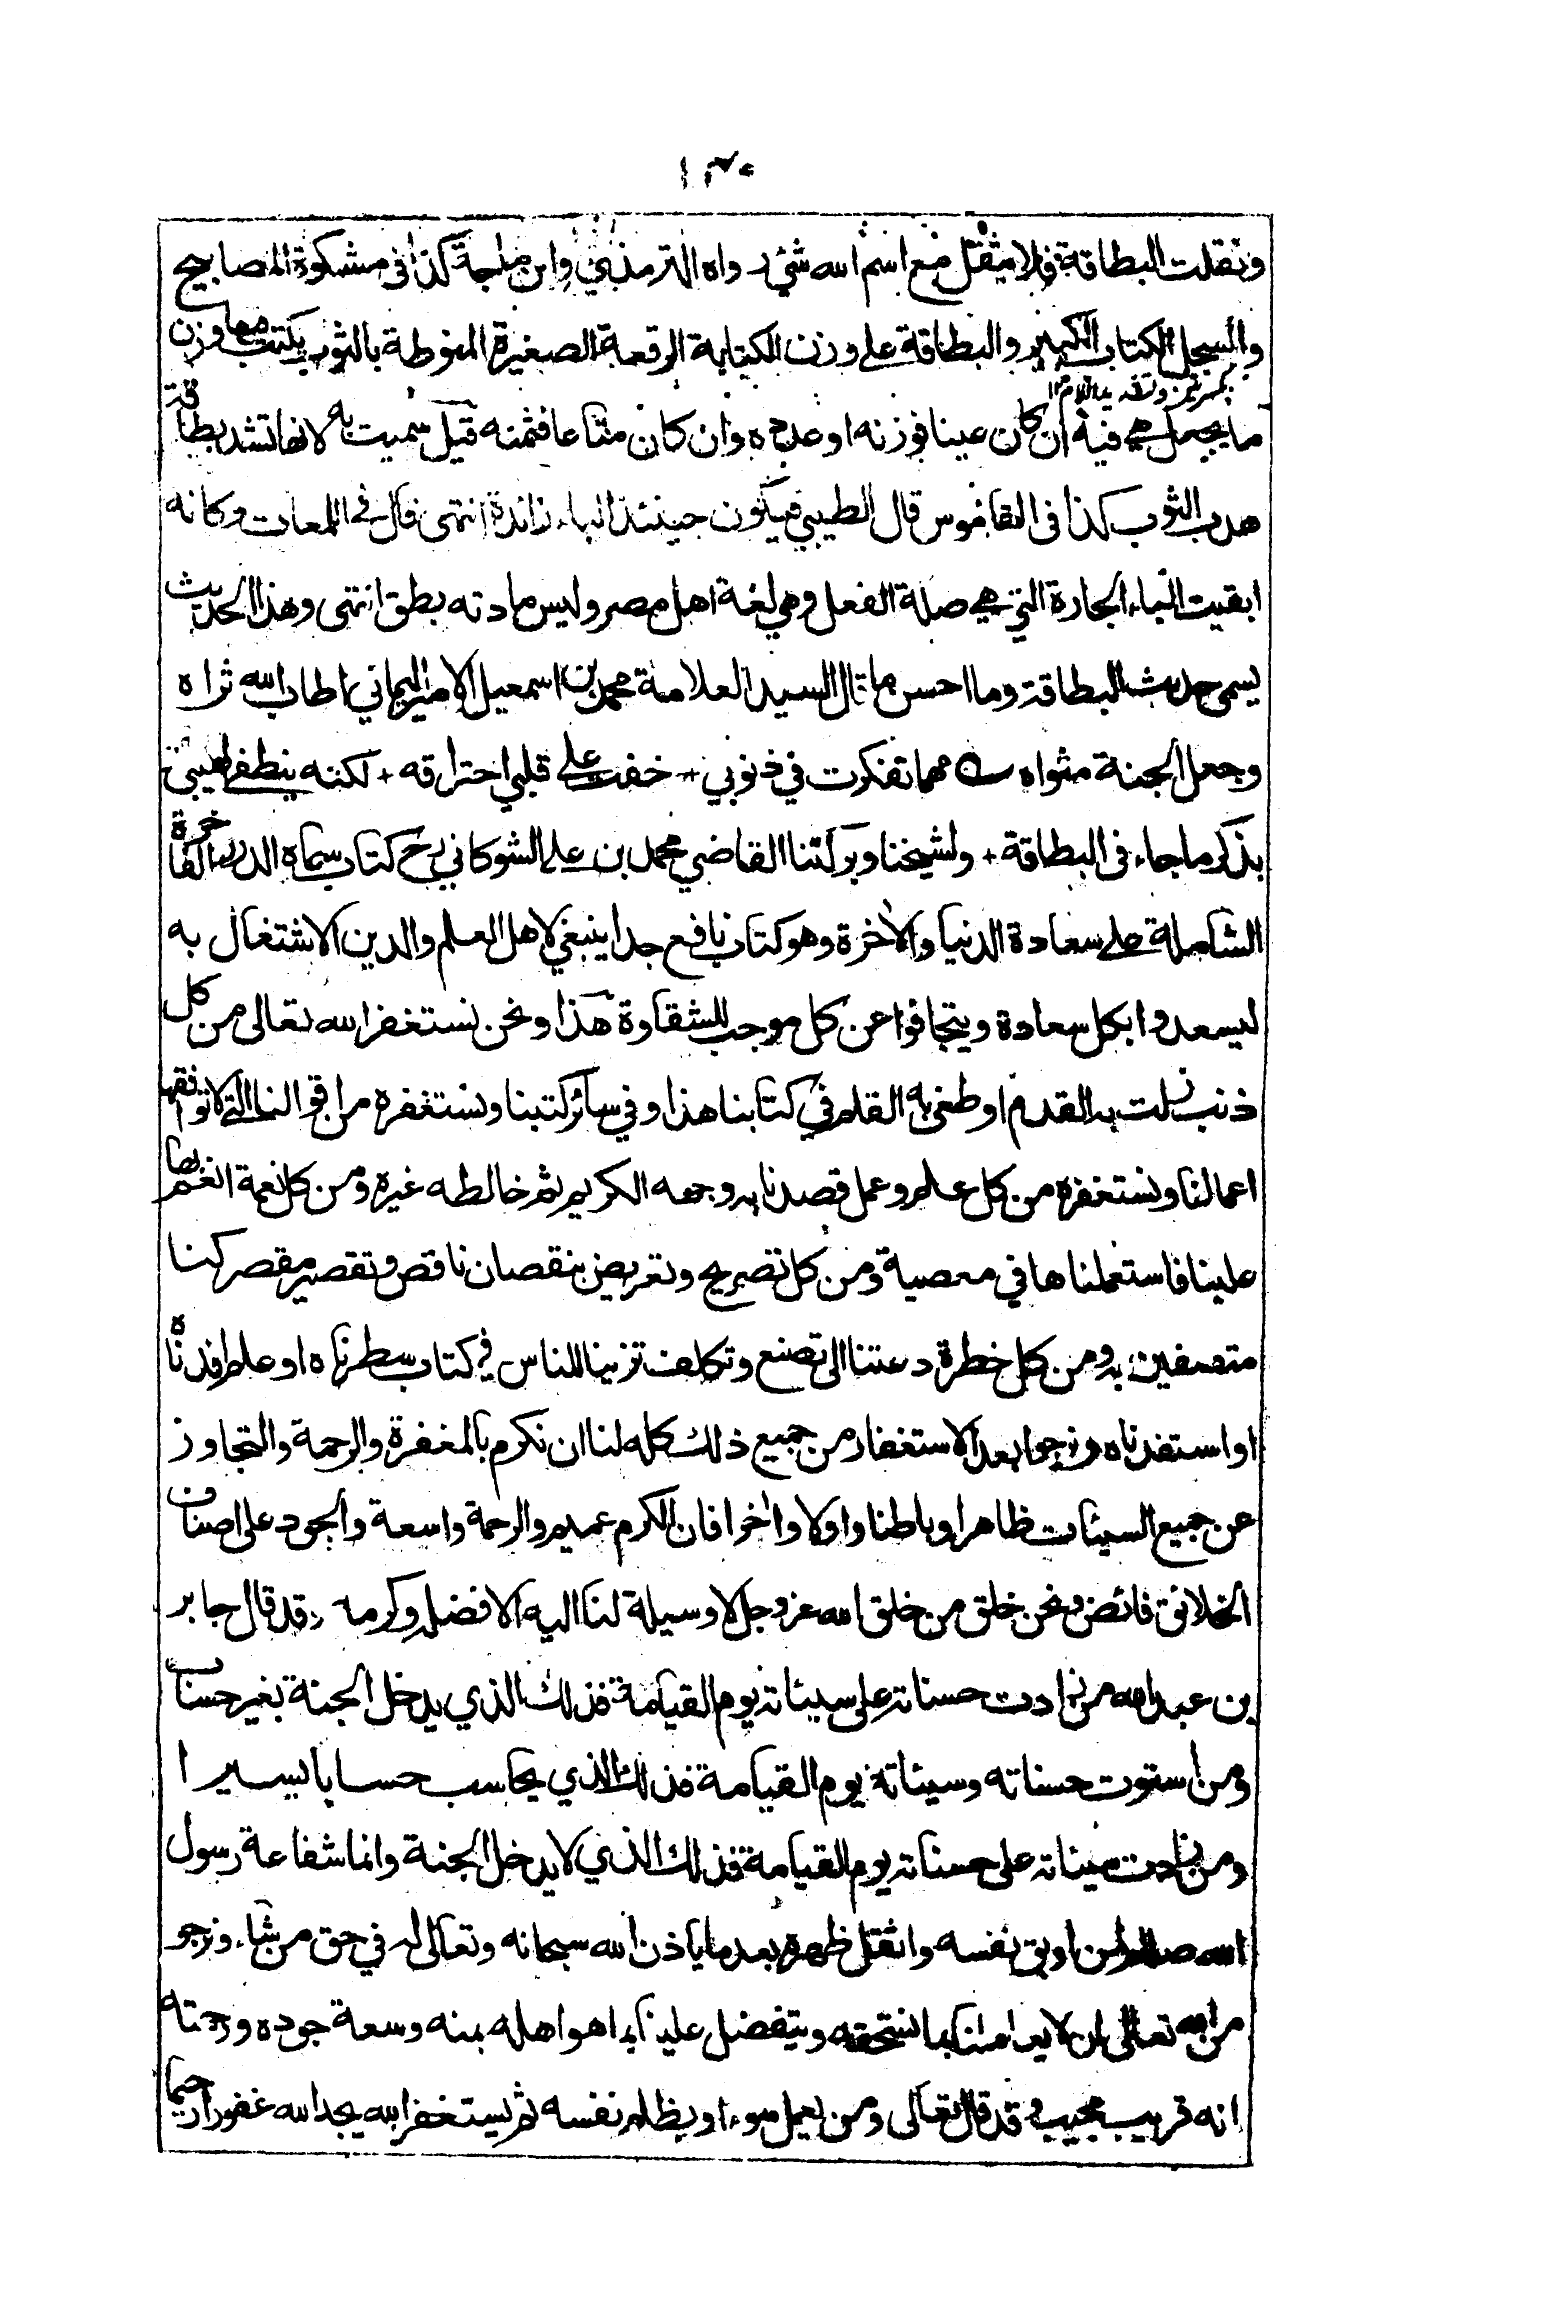 ١٣٠
وثقلت البطاقة فلا يثقل مع اسم الله شيء رواه الترمذي وابن ماجة كذا في مشكوة المصابيح
والسجل الكتاب الكبير والبطاقة على وزن الكتابة الرقعة الصغيرة المنوطة بالثوب يكتب فيها وزن
ما يجعل هي فيه ان كان عينا فوزنه او عدده وان كان متاعا فثمنه قيل سميت به لانها تشد بطاقة
هدب الثوب كذا في القاموس قال الطيبي فيكون حينئذ الباء زائدة انتهى قال في اللمعات وكانه
ابقيت الباء الجارة التي هي صلة الفعل وهي لغة اهل مصر وليس مادته بطق انتهى وهذا الحديث
يسمى حديث البطاقة وما احسن ما قال السيد العلامة محمد بن اسمعيل الامير اليماني اطاب الله ثراه
وجعل الجنة مثواه مهما تفكرت في ذنوبي + خفت على قلبي احتراقه + لكنه ينطفي لهيبي
بذكر ما جاء في البطاقة + ولشيخنا وبركتنا القاضي محمد بن علي الشوكاني رح كتاب سماه الدرر الفاخرة
الشاملة على سعادة الدنيا والاخرة وهو كتاب نافع جدا ينبغي لاهل العلم والدين الاشتغال به
ليسعدوا بكل سعادة ويتجافوا عن كل موجب للشقاوة هذا ونحن نستغفر الله تعالى من كل
ذنب زلت به القدم او طغى به القلم في كتابنا هذا وفي سائر كتبنا ونستغفره من اقوالنا التي لا توافقها
اعمالنا ونستغفره من كل علم وعمل قصدنا به وجهه الكريم ثم خالطه غيره ومن كل نعمة انعم بها
علينا فاستعملناها في معصية ومن كل تصريح وتعريض بنقصان ناقص وتقصير مقصر كنا
متصفين به ومن كل خطرة دعتنا الى تصنع وتكلف تزينا للناس في كتاب سطرناه او علم افدناه
او استفدناه ونرجو بعد الاستغفار من جميع ذلك كله لنا ان نكرم بالمغفرة والرحمة والتجاوز
عن جميع السيئات ظاهرا وباطنا واولا واخرا فان الكرم عميم والرحمة واسعة والجود على اصناف
الخلائق فائض ونحن خلق من خلق الله عز وجل لا وسيلة لنا اليه الا فضله وكرمه وقد قال جابر
بن عبد الله من زادت حسناته على سيئاته يوم القيامة فذلك الذي يدخل الجنة بغير حساب
ومن استوت حسناته وسيئاته يوم القيامة فذلك الذي يحاسب حسابا يسيرا
ومن زادت سيئاته على حسناته يوم القيامة فذلك الذي لا يدخل الجنة وانما شفاعة رسول
الله صللم لمن اوبق نفسه واثقل ظهره بعد ما ياذن الله سبحانه وتعالى له في حق من شاء ونرجو
من الله تعالى ان لا يعاملنا بما نستحقه ويتفضل علينا بما هو اهله بمنه وسعة جوده ورحمته
انه قريب مجيب وقد قال تعالى ومن يعمل سوءا او يظلم نفسه ثم يستغفر الله يجد الله غفورا رحيما